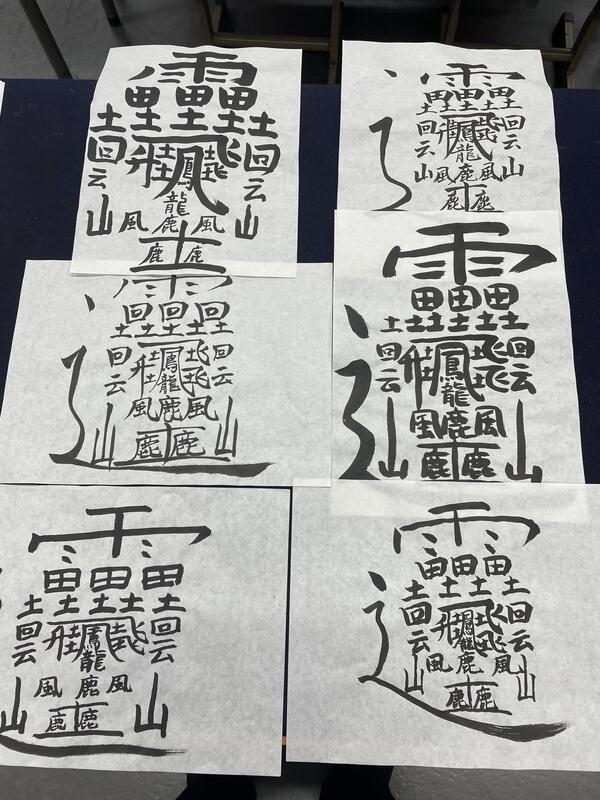 雨
田 田 田
土 土 土
土 土
回 鳳 飛 回
云 龍 云
山 風 鹿 風 山
鹿 鹿
雨
田 田 田
土 土 土
回 飛 回
云 龍 云
山 風 鹿 風 山
鹿 鹿
雨
回 回 回
土 土 土
回 鳳 飛 回
云 龍 飛 云
風 鹿 風
山 鹿 鹿 山
雨
田 田 田
土 土 土 土 土
回 鳳 飛 回
云 龍 飛 云
風 鹿 風
山 鹿 鹿 山
雨
田 田 田
土 土 土 土 土
回 鳳 飛 回
云 龍 云
風 鹿 風
山 鹿 鹿 山
雨
田 田 田
土 土 土 土 土
回 鳳 飛 回
云 龍 飛 云
山 風 鹿 風 山
鹿 鹿